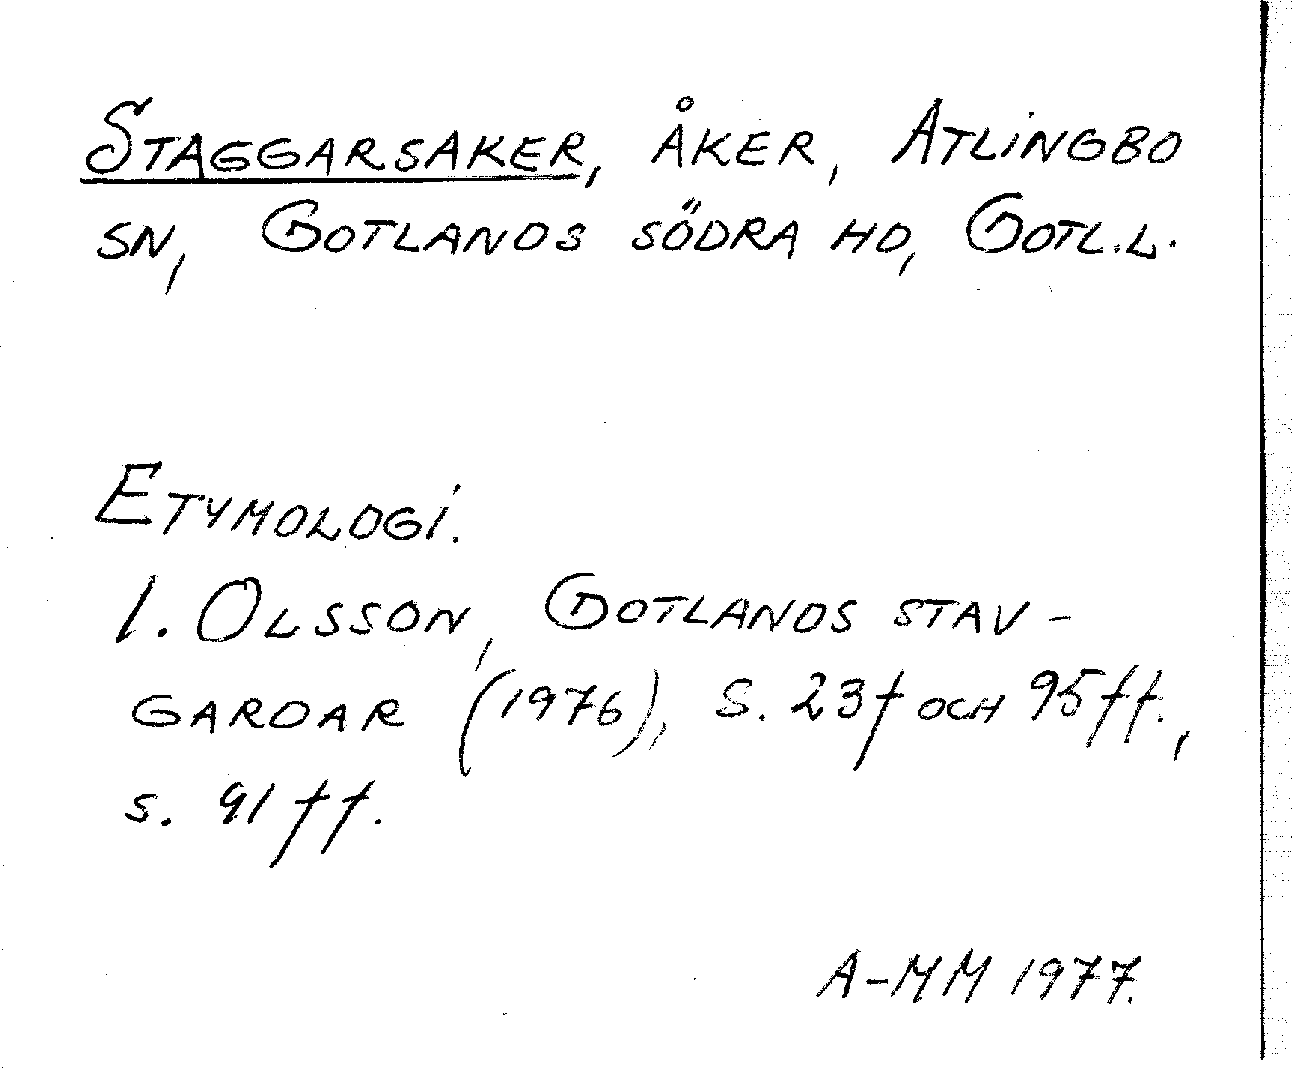 STAGGARSAKER, ÅKER, ATLINGBO
SN, GOTLANDS SÖDRA HD, GOTL.L.
ETYMOLOGI.
I. OLSSON, GOTLANDS STAV-
GARDAR (1976), S. 23f OCH 95ff.,
s. 91ff.
A-MM 1977.